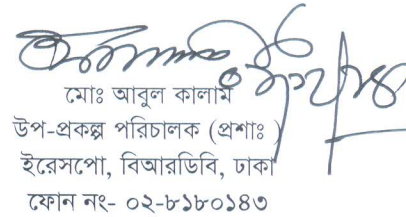 মোঃ আবুল কালাম
উপ-প্রকল্প পরিচালক (প্রশাঃ )
ইরেসপো, বিআরডিবি, ঢাকা
ফোন নং- ০২-৮১৮০১৪৩